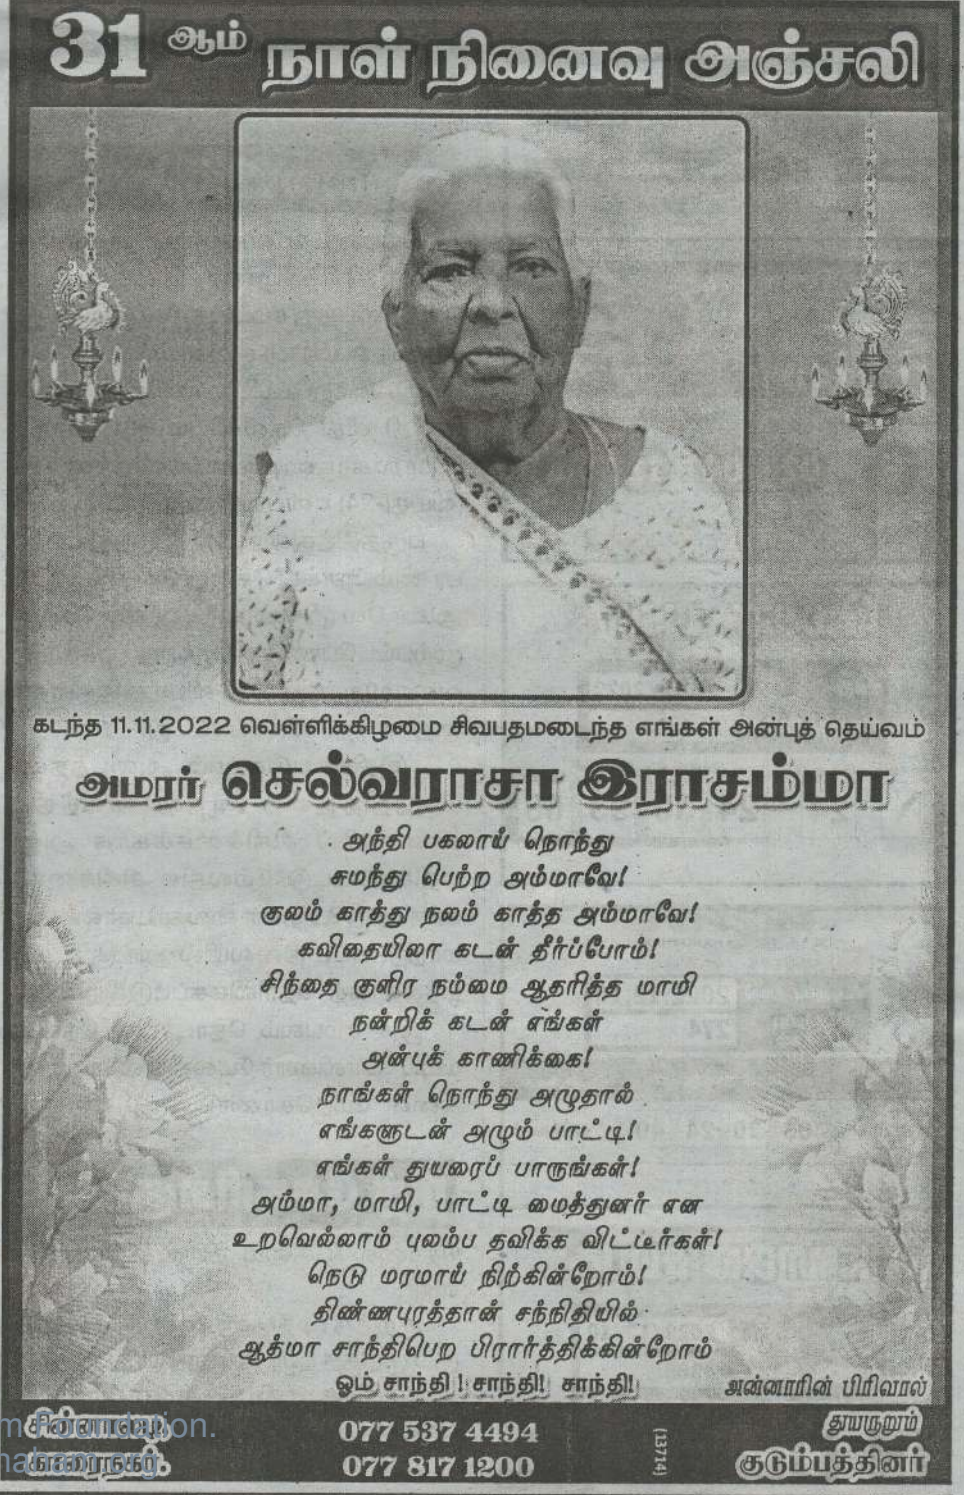 31 ஆம் நாள் நினைவு அஞ்சலி
கடந்த 11.11.2022 வெள்ளிக்கிழமை சிவபதமடைந்த எங்கள் அன்புத் தெய்வம்
அமரர் செல்வராசா இராசம்மா
அந்தி பகலாய் நொந்து
சுமந்து பெற்ற அம்மாவே!
குலம் காத்து நலம் காத்த அம்மாவே!
கவிதையிலா கடன் தீர்ப்போம்!
சிந்தை குளிர நம்மை ஆதரித்த மாமி
நன்றிக் கடன் எங்கள்
அன்புக் காணிக்கை!
நாங்கள் நொந்து அழுதால்
எங்களுடன் அழும் பாட்டி!
எங்கள் துயரைப் பாருங்கள்!
அம்மா, மாமி, பாட்டி மைத்துனர் என
உறவெல்லாம் புலம்ப தவிக்க விட்டீர்கள்!
நெடு மரமாய் நிற்கின்றோம்!
திண்ணபுரத்தான் சந்நிதியில்
ஆத்மா சாந்திபெற பிரார்த்திக்கின்றோம்
ஓம் சாந்தி! சாந்தி! சாந்தி!
அன்னாரின் பிரிவால்
துயருறும்
குடும்பத்தினர்
காரைநகர்.
077 537 4494
077 817 1200
(13714)
m Foundation.
naham.org